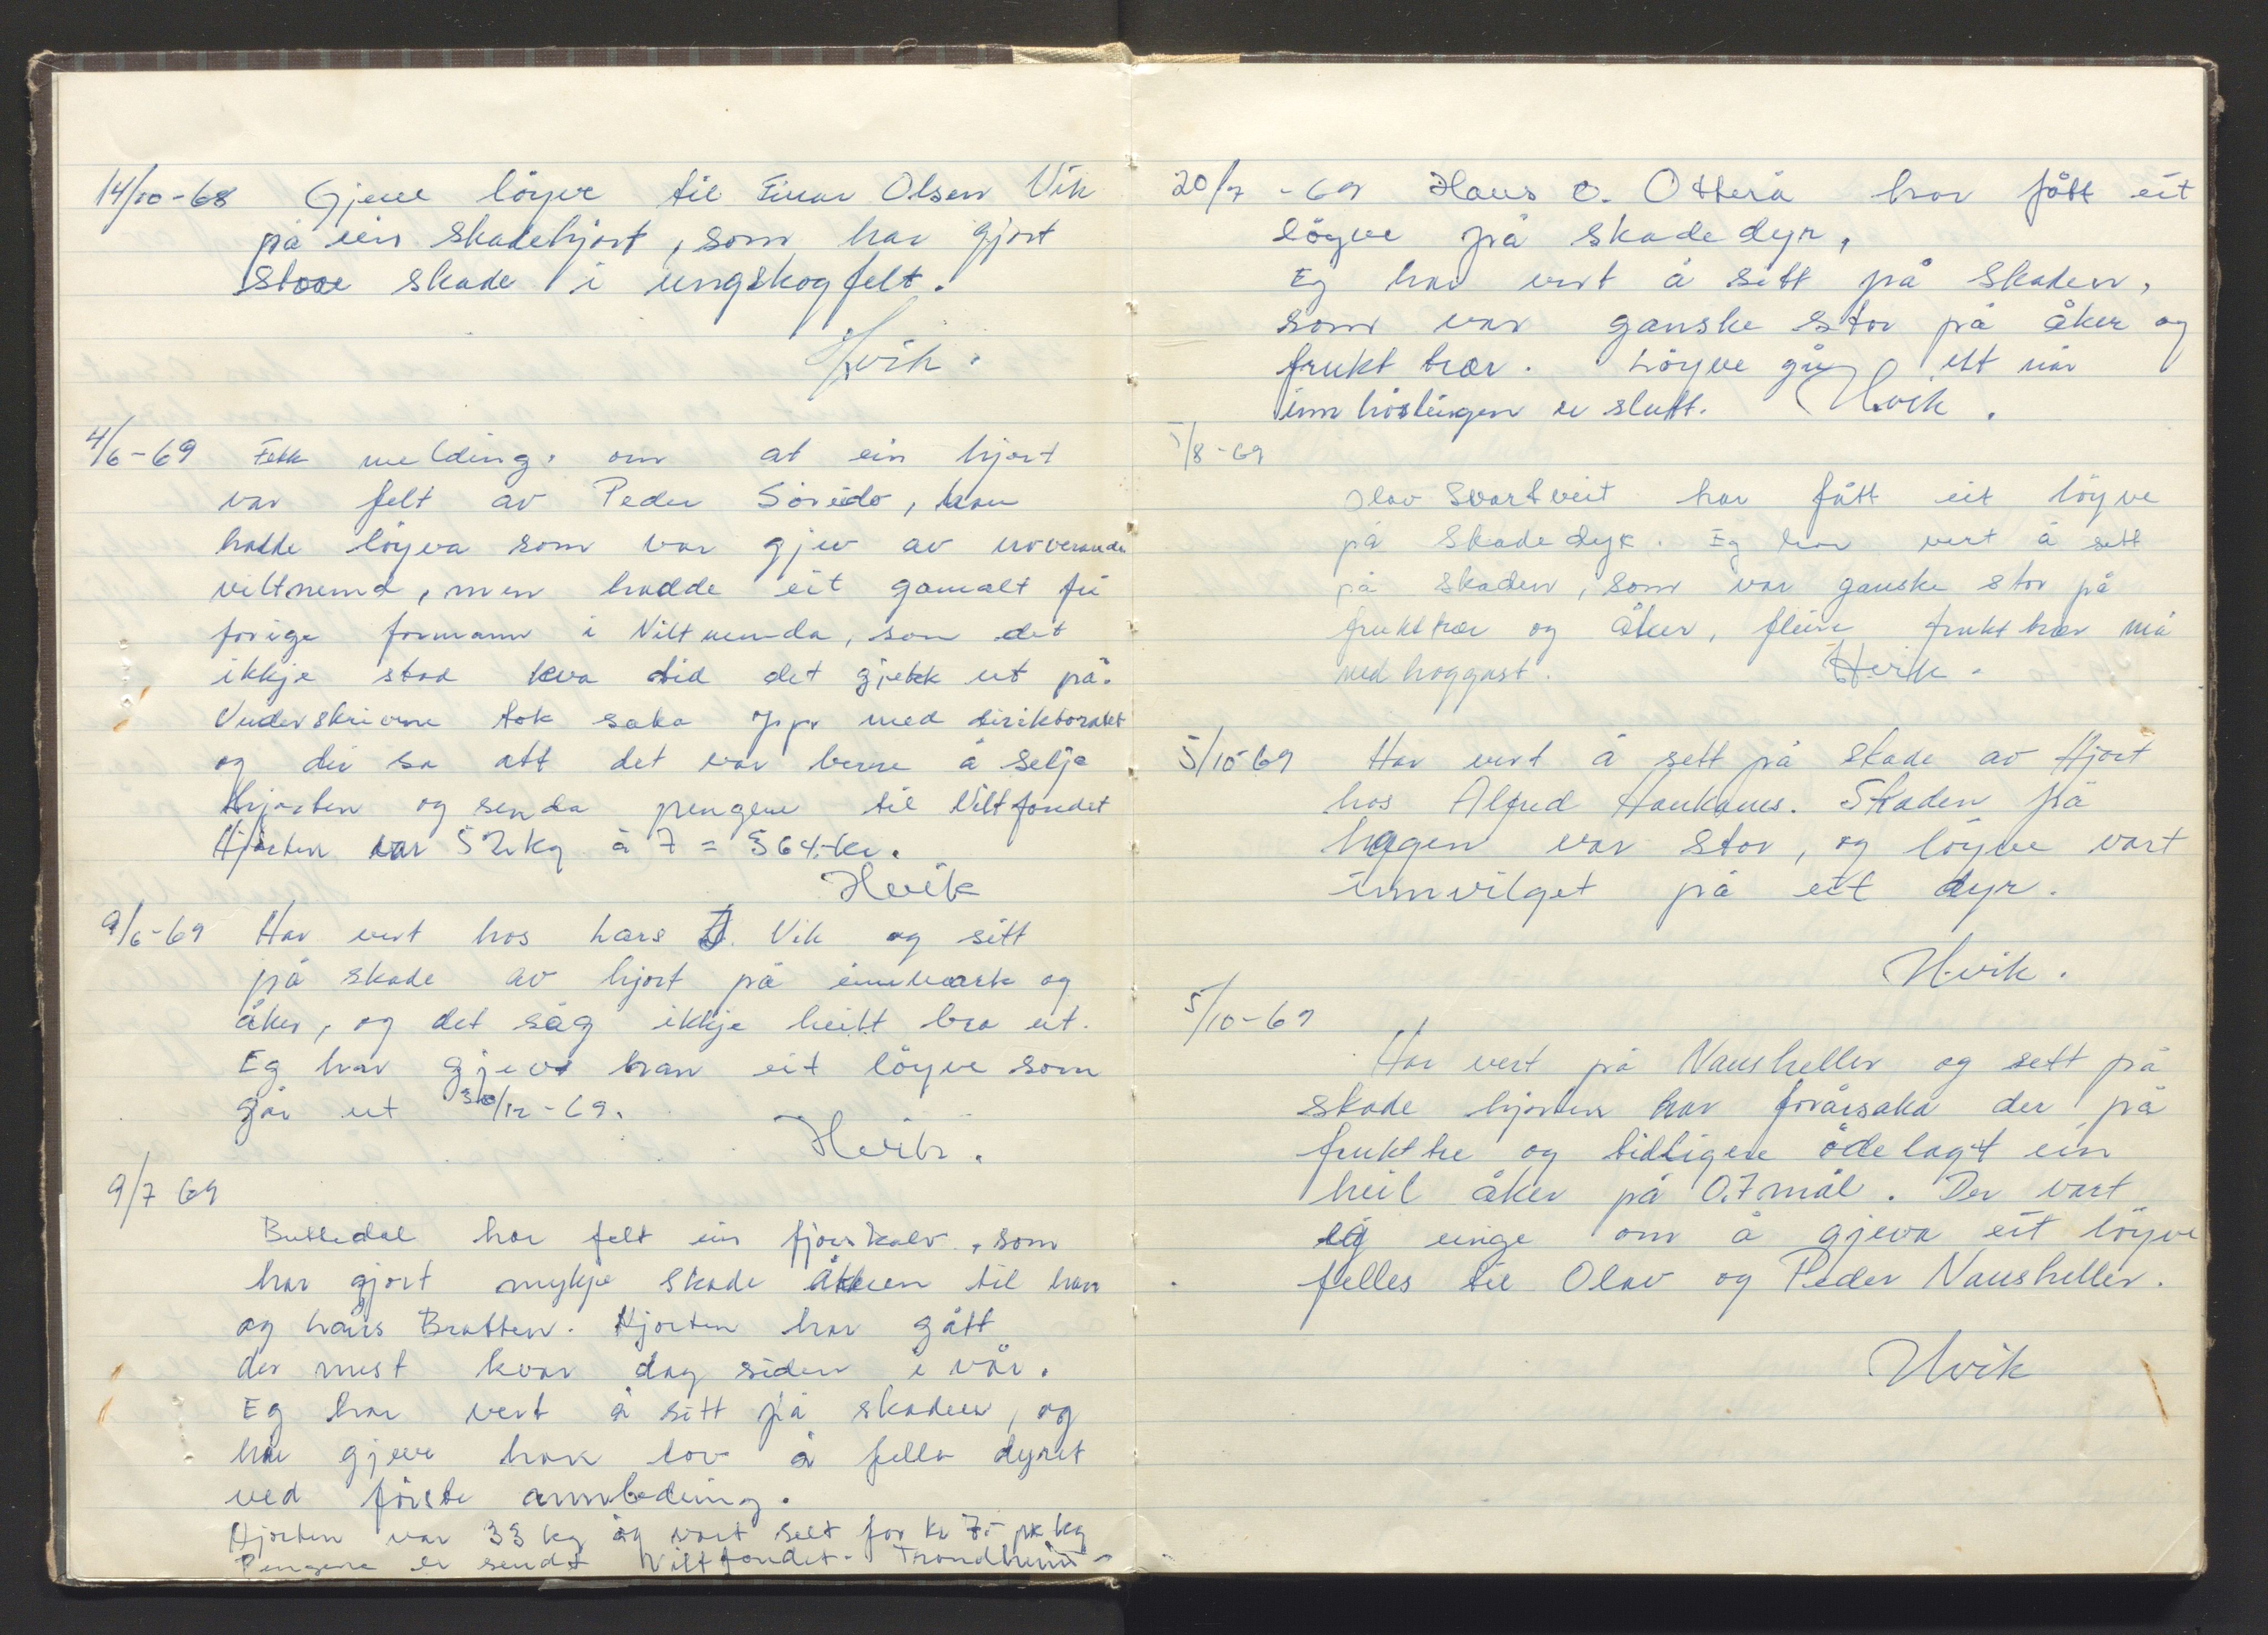 14/10-68 Gjeve löyve til Einar Olsen Vik
på ein skadehjort, som har gjort
store skade i ungskogfelt.
Hvik.
4/6-69 Fekk melding. om at ein hjort
var felt av Peder Söreide, han
hadde löyva som var gjev av noverande
viltnemd, men hadde eit gamalt frå
forige formann i Viltnemda, som det
ikkje stod kva tid det gjekk ut på.
Underskrivne tok saka opp med direktoratet
og dei sa att det var berre å selja
hjorten og senda pengene til Viltfondet
Hjorten var 52kg à 7 = 364.-kr.
Hvik
9/6-69 Har vert hos Lars Vik og sett
på skade av hjort på innmark og
åker, og det såg ikkje heitt bra ut.
Eg har gjeve han eit löyve som
går ut 30/12-69.
Hvik.
9/7 69
Buttedal har felt ein fjorskalv, som
har gjort mykje skade åkeren til han
og Lars Bratten. Hjorten har gått
der mest kvar dag siden i vår.
Eg har vert å sett på skaden, og
har gjeve han lov å fella dyret
ved förste annbedning.
Hjorten var 33 kg og vart selt for kr 7.- pr kg
Pengene er sendt Viltfondet - Trondheim -
20/7 -69 Hans O. Otterå har fått eit
löyve på skadedyr,
Eg har vert å sett på skaden,
som var ganske stor på åker og
frukt trær. Löyve går ut når
innhöstingen er slutt. Hvik.
5/8-69
Olav Svartveit har fått eit löyve
på skadedyr. Eg har vert å sett
på skaden, som var ganske stor på
frukttrær og åker, fleire frukt trær må
nedhoggast. Hvik.
5/10-69 Har vert å sett på skade av Hjort
hos Alfred Haukanes. Skaden på
hagen var stor, og löyve vart
innvilget på eit dyr.
Hvik.
5/10-69
Har vert på Nausheller og sett på
skade hjorten har forårsaka der på
frukttre og tidligere ödelagt ein
heil åker på 0.7 mål. Der vart
eg einige om å gjeva eit löyve
felles til Olav og Peder Nausheller.
Hvik